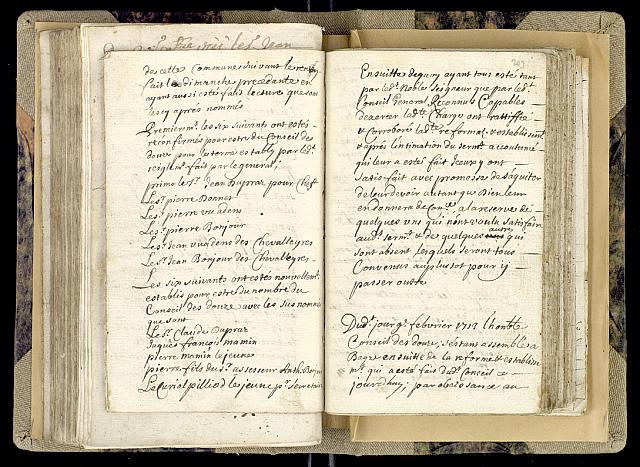 de cette Commune suivant le renvoy
fait le dimanche precedante en
ayant aussi esté fait lecture que sont
les cy apres nommés
Premierem.t les six suivants ont estés
reconfirmés pour estre du Conseil des
douze pour la terme estably par led.t
reiglem.t fait par le general;
primo le S.r Jean Dupraz pour Cheff
Le S.r pierre Bonnet
Le S.r pierre vuadens
Le S.r pierre Bonjour
Le S.r Jean vuadens des Chevalleyres
Le S.r Jean Bonjour des Chevalleyres
Les six suivants ont estés nouvellem.t
establis pour estre du nombre du
Conseil des douze avec les sus nommés
que sont
Le S.r Claude Dupraz
Jaques françois mamin
pierre mamin le jeune
pierre fils du S.r assesseur Anth. Bonjour
Le Curial pilliod le jeune p.r secretaire
Ensuitte de quoy ayant tous esté tant
par led.t Noble Seigneur que par led.t
Conseil General Reconnus Cappables
dexercer lad.te Charge ont trattiffié
& corroboré lad.te reforme & establissem.t
& après l'intimation du serm.t accoutumé
qui leur a esté fait iceux y ont
satisfait avec promesse de s'aquiter
de leur devoir autant que Dieu leur
en donnera de Con.ce, a la reserve de
quelques uns qui n'ont voulu satisfaire
aud.t serm.t & de quelques autres qui
sont absent lesquels seront tous
Convenus au plustot pour y
passer outre
Dud.t jour 9.e febvrier 1713 l'honble
Conseil des douze, s'estant assemblés a
Baye ensuitte de la reforme & establissem.t
qui a esté fait dud.t Conseil ce
jourdhuy, par obeissance au